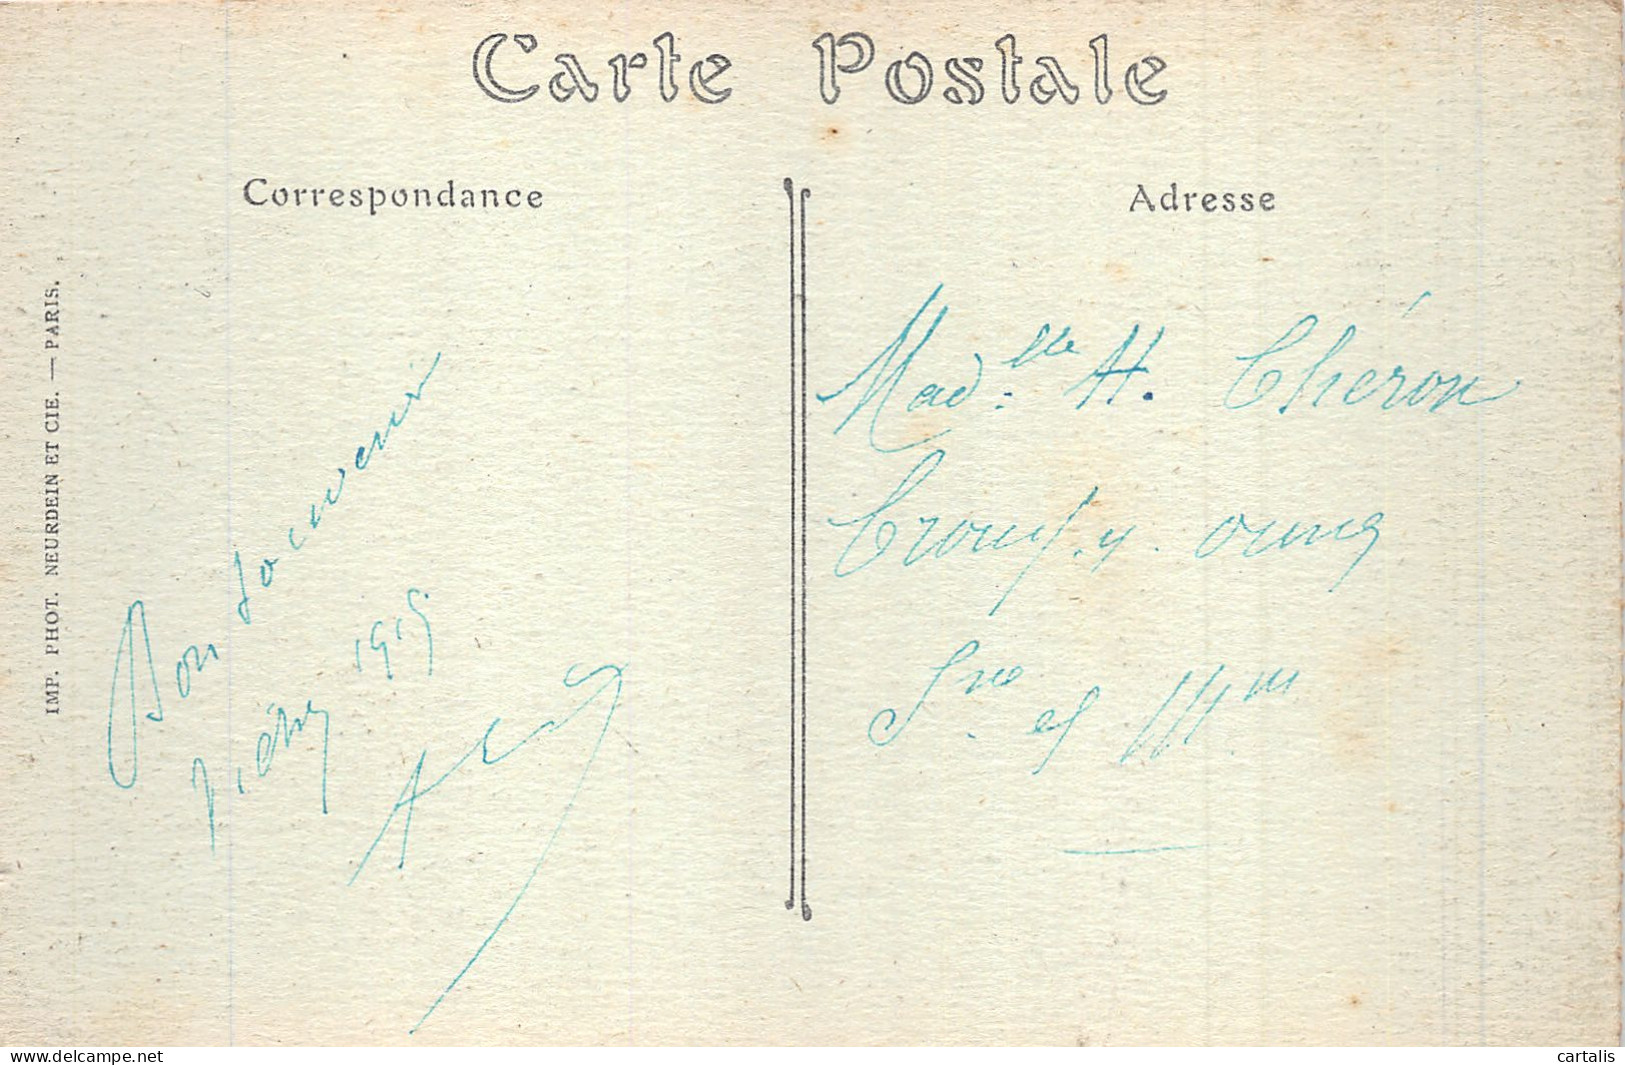 Carte Postale
Correspondance
Adresse
IMP. PHOT. NEURDEIN ET CIE. — PARIS.
Bon souvenir
Vichy 1915
Madlle H. Chéron
Crouy-s.-Ourcq
Sne et Mne
www.delcampe.net
cartalis